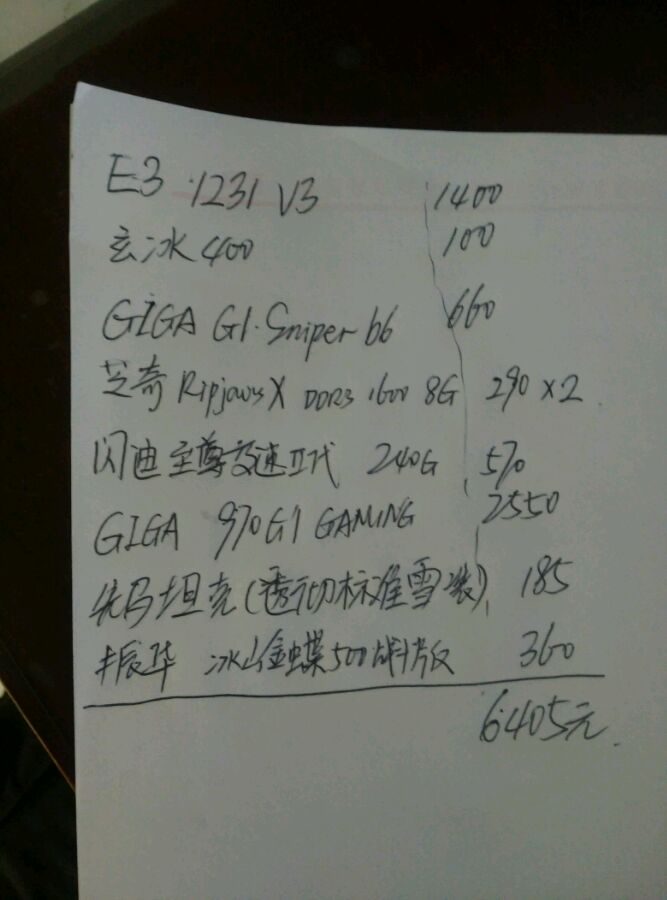 E3 1231 V3 1400
玄冰400 100
GIGA G1.Sniper b6 660
芝奇 RipjawsX DDR3 1600 8G 290×2
闪迪 至尊极速II代 240G 570
GIGA 970G1 GAMING 2550
先马坦克(透明标准雪装) 185
振华 冰山金蝶500 片版 360
6405元.